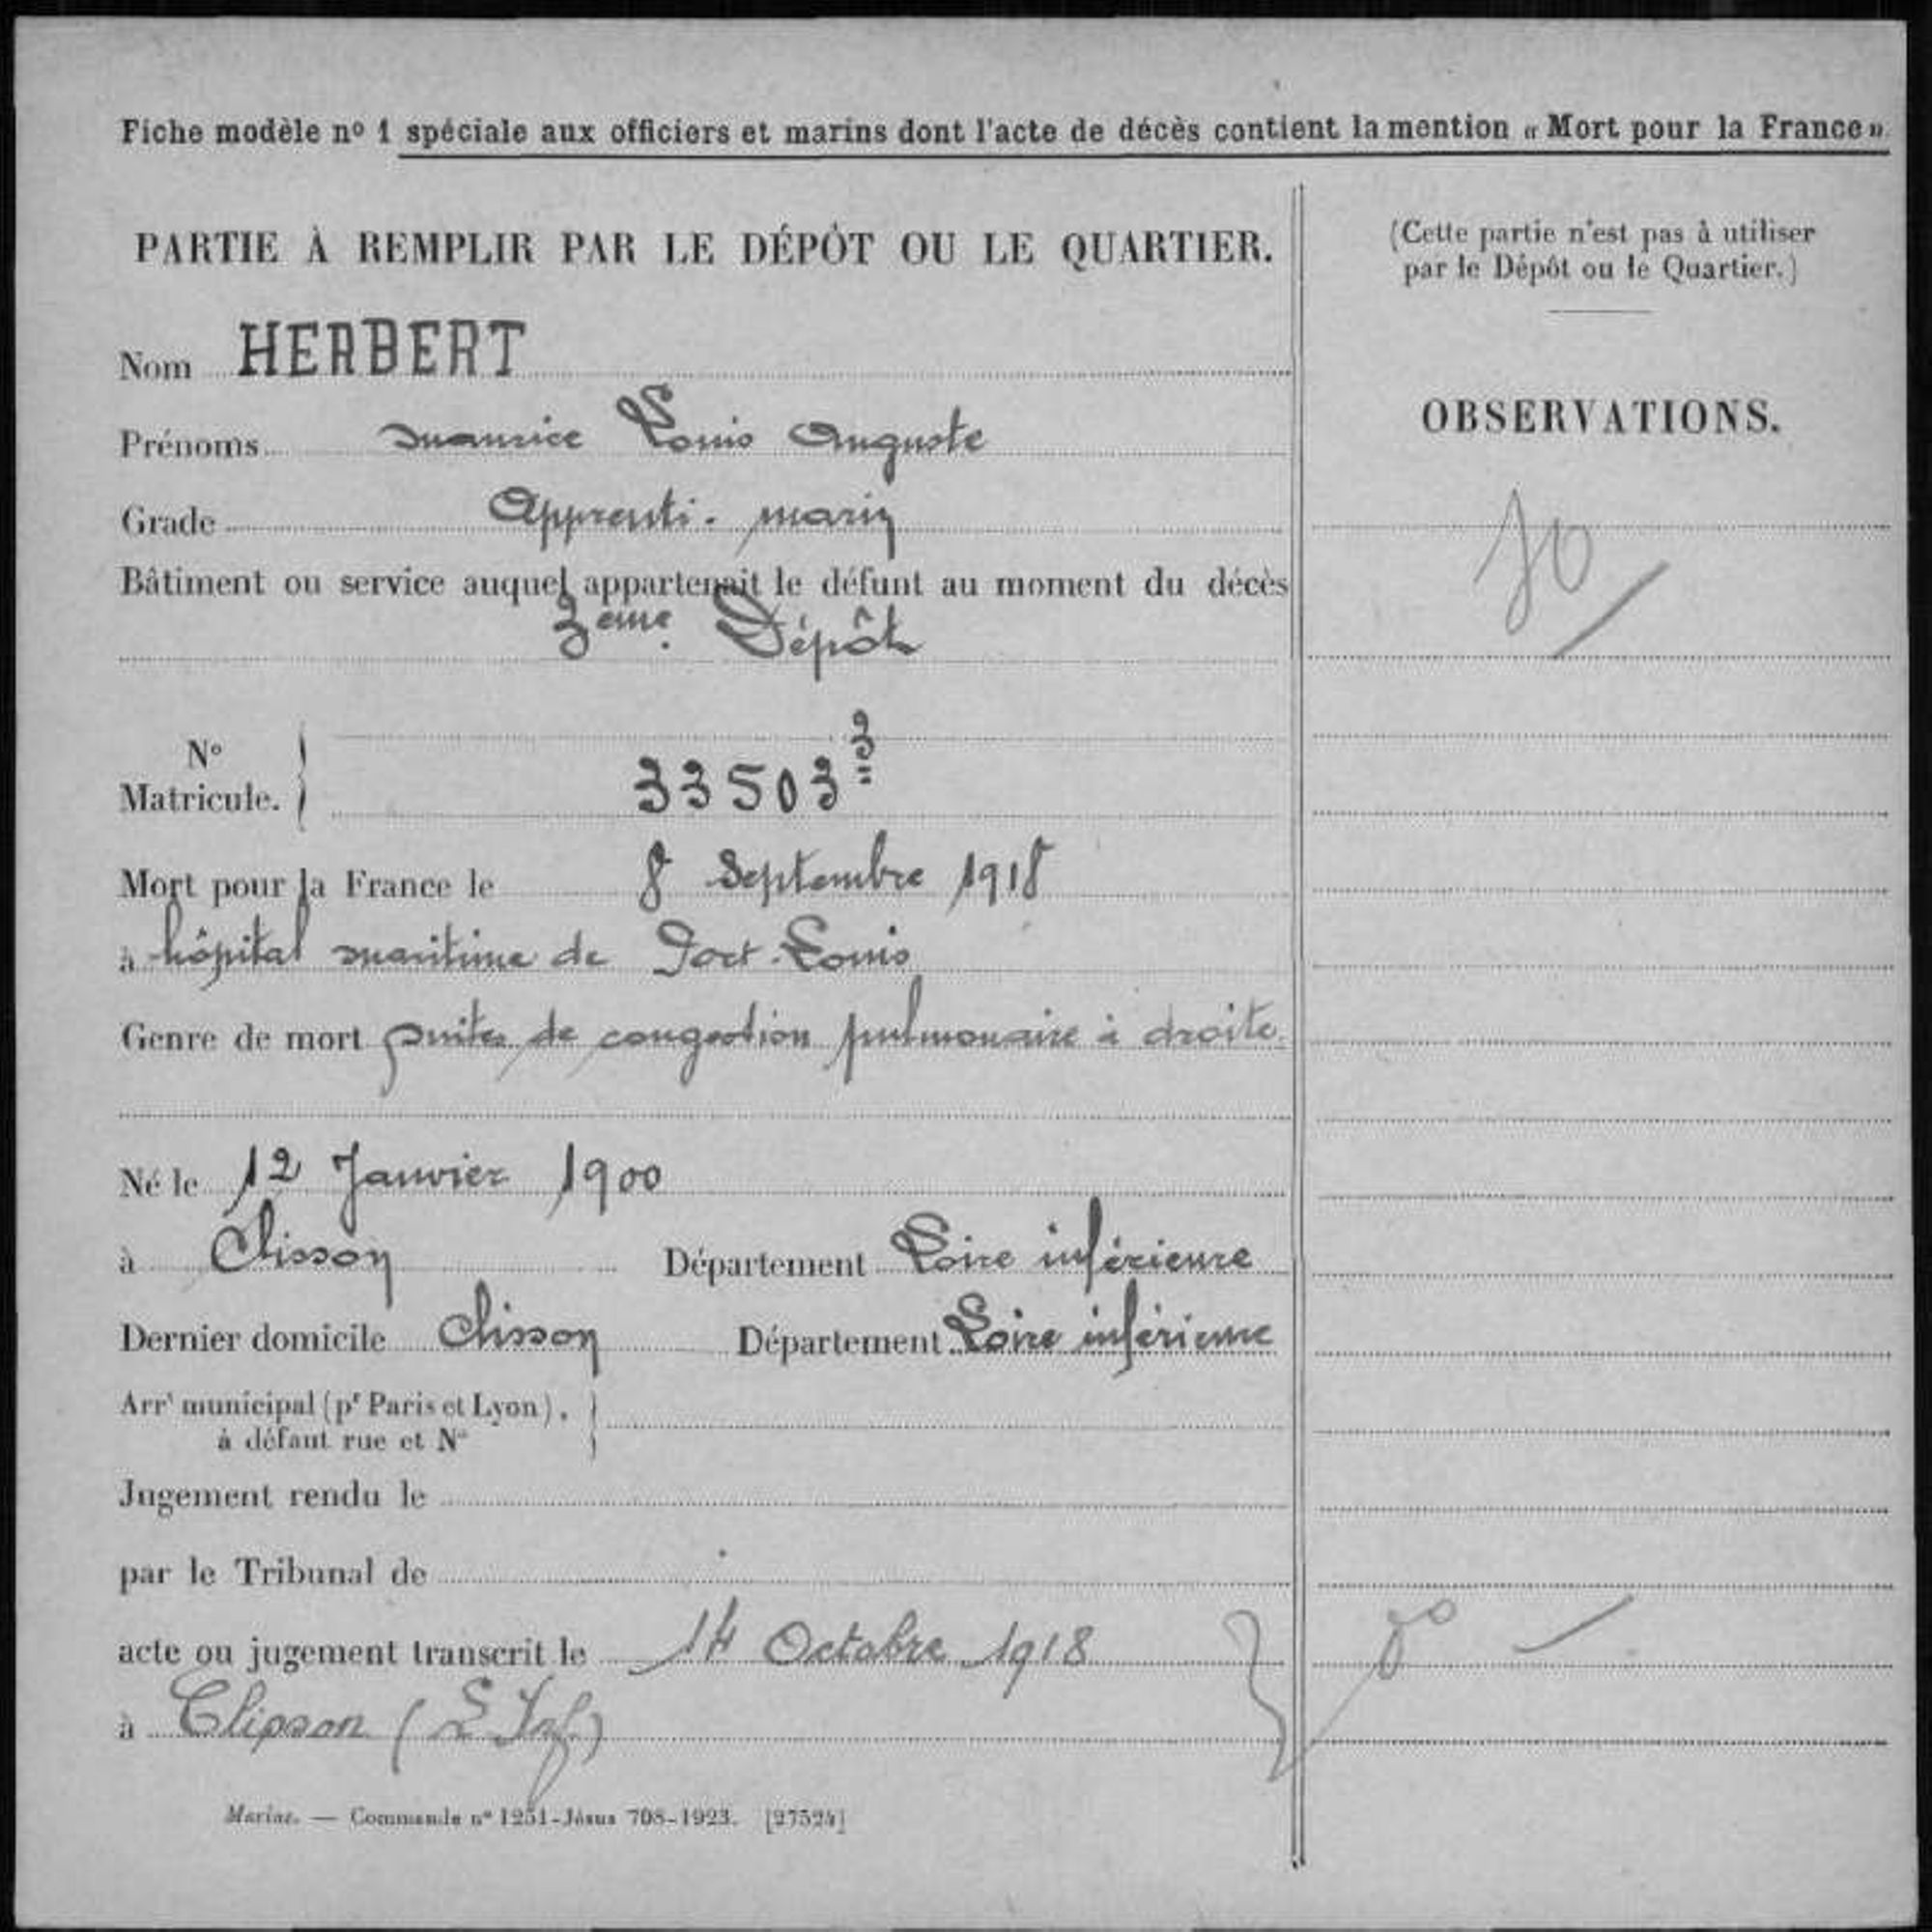 Fiche modèle nº 1 spéciale aux officiers et marins dont l'acte de décès contient la mention « Mort pour la France »
PARTIE À REMPLIR PAR LE DÉPÔT OU LE QUARTIER.
Nom HERBERT
Prénoms Maurice Louis Auguste
Grade Apprenti-marin
Bâtiment ou service auquel appartenait le défunt au moment du décès
3eme. Dépôt
Nº
Matricule. 33503 3
Mort pour la France le 8 Septembre 1918
à hôpital maritime de Port-Louis
Genre de mort suites de congestion pulmonaire à droite.
Né le 12 Janvier 1900
à Clisson Département Loire inférieure
Dernier domicile Clisson Département Loire inférieure
Arrt municipal (pr Paris et Lyon),
à défaut rue et Nº
Jugement rendu le
par le Tribunal de
acte ou jugement transcrit le 14 Octobre 1918
à Clisson (L Inf.)
Marine. — Commande nº 1251-Jésus 708-1923. [27524]
(Cette partie n'est pas à utiliser
par le Dépôt ou le Quartier.)
OBSERVATIONS.